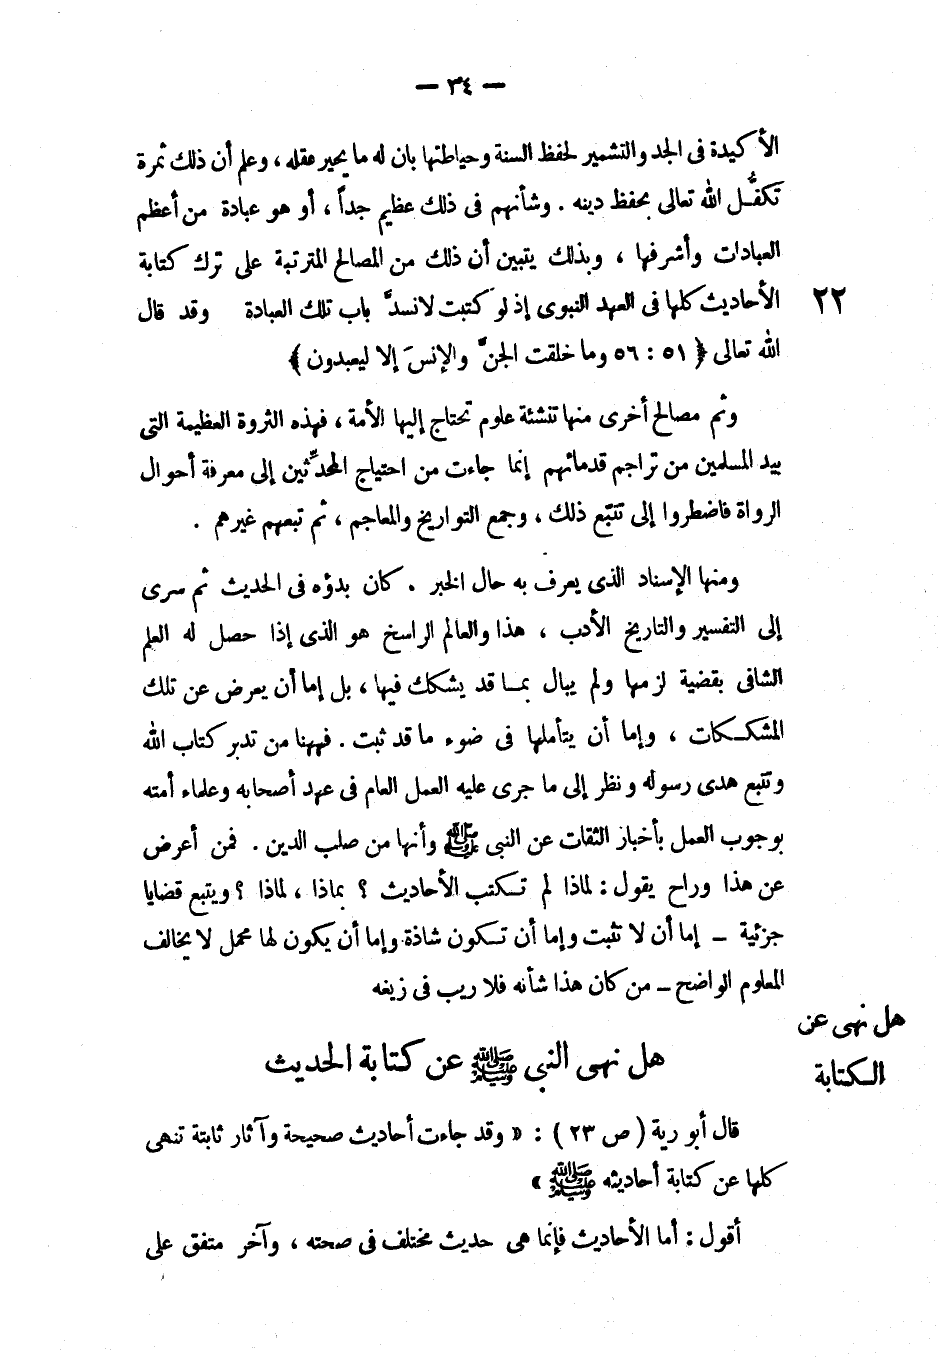 — ٣٤ —
الأكيدة فى الجد والتشمير لحفظ السنة وحياطتها بان له ما يحير عقله ، وعلم أن ذلك ثمرة
تكفُّل الله تعالى بحفظ دينه . وشأنهم فى ذلك عظيم جداً ، أو هو عبادة من أعظم
العبادات وأشرفها ، وبذلك يتبين أن ذلك من المصالح المترتبة على ترك كتابة
الأحاديث كلها فى العهد النبوى إذ لو كتبت لانسدَّ باب تلك العبادة وقد قال
٢٢
الله تعالى ﴿ ٥١ : ٥٦ وما خلقت الجنَّ والإنسَ إلا ليعبدون ﴾
وثم مصالح أخرى منها تنشئة علوم تحتاج إليها الأمة ، فهذه الثروة العظيمة التى
بيد المسلمين من تراجم قدمائهم إنما جاءت من احتياج المحدِّثين إلى معرفة أحوال
الرواة فاضطروا إلى تتبّع ذلك ، وجمع التواريخ والمعاجم ، ثم تبعهم غيرهم .
ومنها الإسناد الذى يعرف به حال الخبر . كان بدؤه فى الحديث ثم سرى
إلى التفسير والتاريخ الأدب ، هذا والعالم الراسخ هو الذى إذا حصل له العلم
الشافى بقضية لزمها ولم يبال بما قد يشكك فيها ، بل إما أن يعرض عن تلك
المشككات ، وإما أن يتأملها فى ضوء ما قد ثبت . فههنا من تدبر كتاب الله
وتتبع هدى رسوله ونظر إلى ما جرى عليه العمل العام فى عهد أصحابه وعلماء أمته
بوجوب العمل بأخبار الثقات عن النبى ﷺ وأنها من صلب الدين . فمن أعرض
عن هذا وراح يقول : لماذا لم تكتب الأحاديث ؟ بماذا ، لماذا ؟ ويتبع قضايا
جزئية – إما أن لا تثبت وإما أن تكون شاذة وإما أن يكون لها محمل لا يخالف
المعلوم الواضح – من كان هذا شأنه فلا ريب فى زيغه
هل نهى عن
الكتابة
هل نهى النبى ﷺ عن كتابة الحديث
قال أبو رية ( ص ٢٣ ) : « وقد جاءت أحاديث صحيحة وآثار ثابتة تنهى
كلها عن كتابة أحاديثه ﷺ »
أقول : أما الأحاديث فإنما هى حديث مختلف فى صحته ، وآخر متفق على